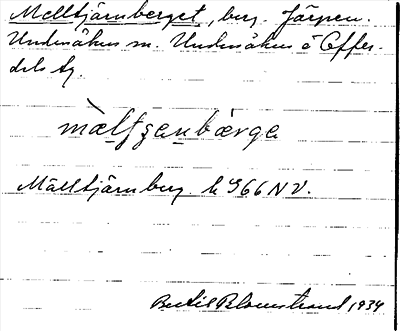 Melltjärnberget, berg. Järpen.
Undersåkers sn. Undersåkers o Offer-
dals tg.
mælʃʒenbærge
Mälltjärnberg. k G66 NV.
Bertil Blomstrand 1934